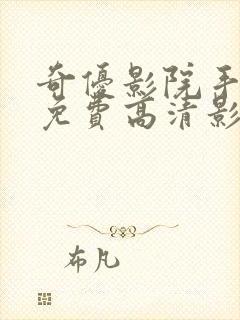 奇優影院手
免費高清影
布凡